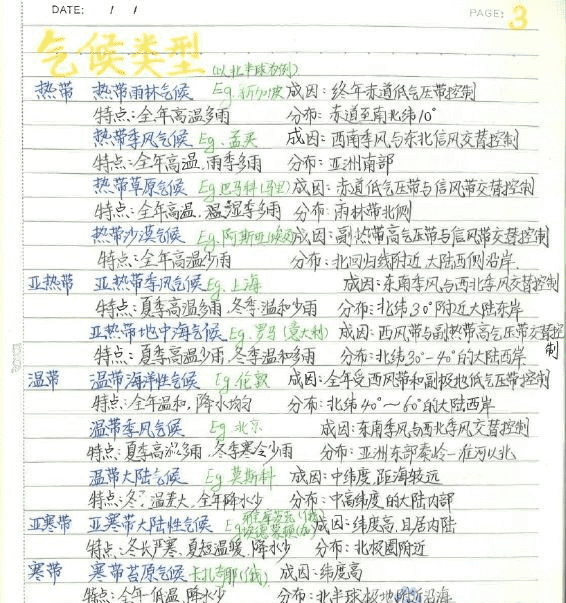 DATE: / / PAGE: 3
气候类型 (以北半球为例)
热带 热带雨林气候 Eg.新加坡 成因:终年赤道低气压带控制
特点:全年高温多雨 分布:赤道至南北纬10°
热带季风气候 Eg.孟买 成因:西南季风与东北信风交替控制
特点:全年高温,雨季多雨 分布:亚洲南部
热带草原气候 Eg.巴马科(马里) 成因:赤道低气压带与信风带交替控制
特点:全年高温,湿季多雨 分布:雨林带北侧
热带沙漠气候 Eg.阿斯旺(埃及) 成因:副热带高气压带与信风带交替控制
特点:全年高温少雨 分布:北回归线附近大陆西侧沿岸
亚热带 亚热带季风气候 Eg.上海 成因:东南季风与西北季风交替控制
特点:夏季高温多雨,冬季温和少雨 分布:北纬30°附近大陆东岸
亚热带地中海气候 Eg.罗马(意大利) 成因:西风带与副热带高气压带交替控制
特点:夏季高温少雨,冬季温和多雨 分布:北纬30°-40°的大陆西岸
温带 温带海洋性气候 Eg.伦敦 成因:全年受西风带和副极地低气压带控制
特点:全年温和,降水均匀 分布:北纬40°~60°的大陆西岸
温带季风气候 Eg.北京 成因:东南季风与西北季风交替控制
特点:夏季高温多雨,冬季寒冷少雨 分布:亚洲东部秦岭-淮河以北
温带大陆气候 Eg.莫斯科 成因:中纬度,距海较远
特点:冬温差大,全年降水少 分布:中高纬度的大陆内部
亚寒带 亚寒带大陆性气候 Eg. 成因:纬度高,且居内陆
特点:冬长严寒,夏短温暖,降水少 分布:北极圈附近
寒带 寒带苔原气候 成因:纬度高
特点:全年低温,降水少 分布:北半球极地附近沿海